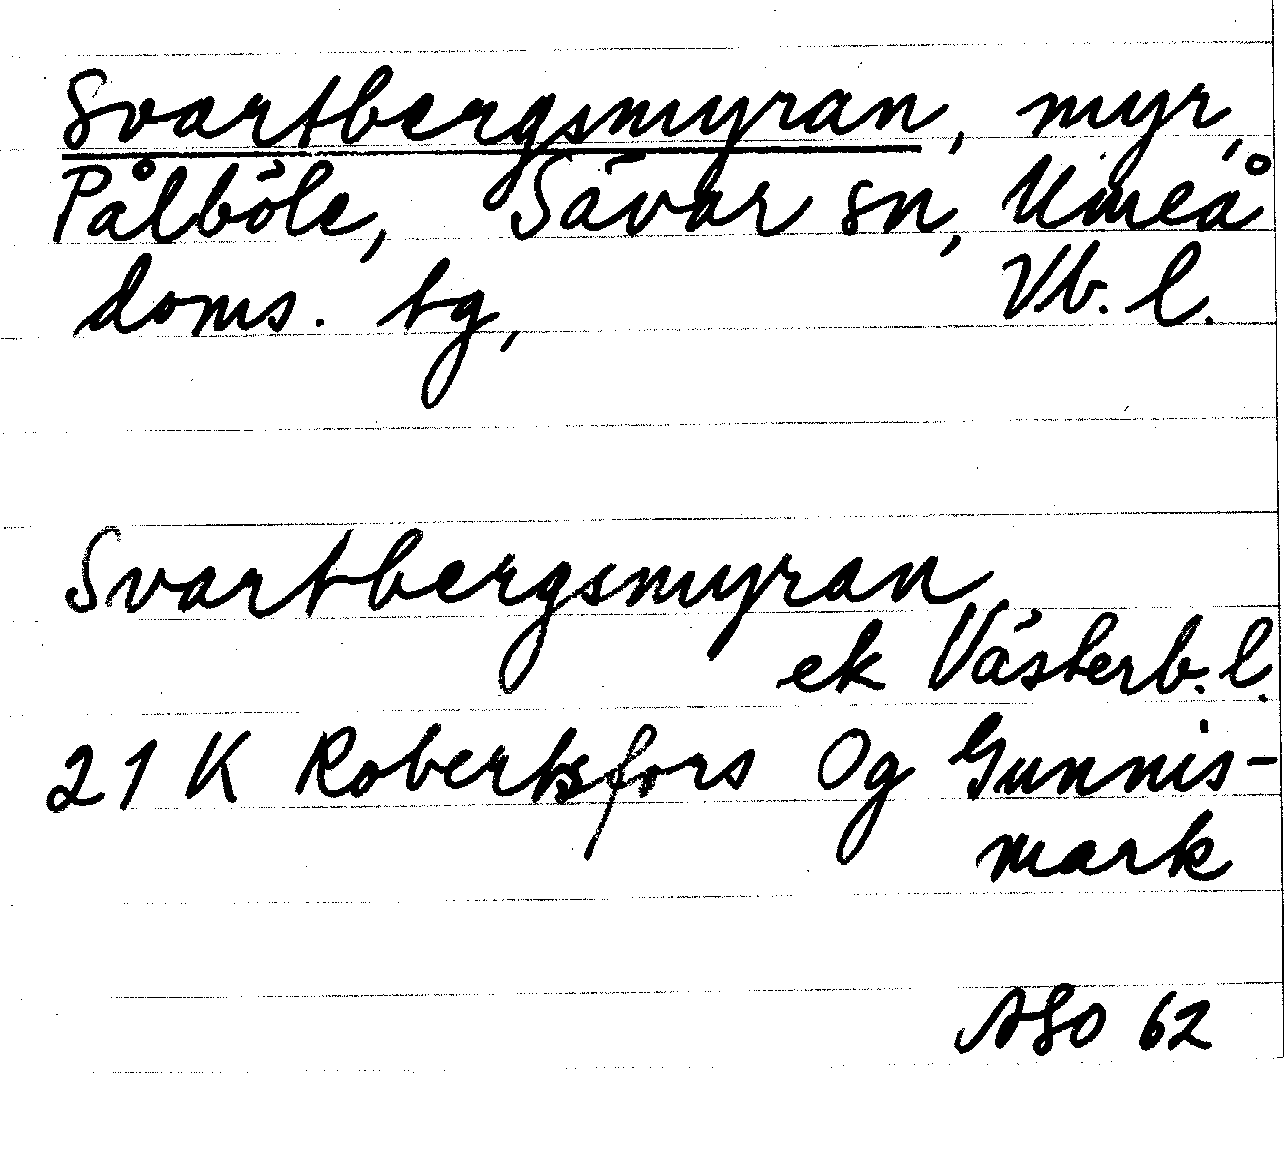 Svartbergsmyran, myr,
Pålböle, Sävar sn, Umeå
doms. tg, Vb. l.
Svartbergsmyran
ek Västerb. l.
21 K Robertsfors Og Gunnis-
mark
ASO 62